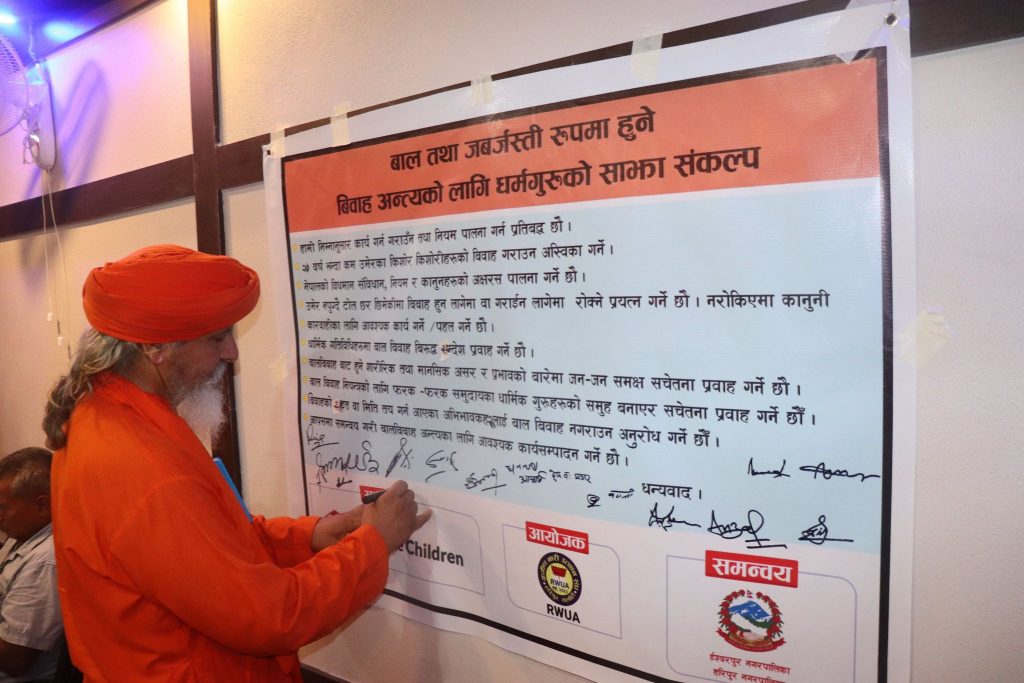 बाल तथा जबर्जस्ती रुपमा हुने
बिवाह अन्त्यको लागि धर्मगुरुको साझा संकल्प
हामी निम्नानुसार कार्य गर्न गराउँन तथा नियम पालना गर्न प्रतिबद्ध छौं ।
२० बर्ष भन्दा कम उमेरका किशोर किशोरीहरुको बिवाह गराउन अस्विकार गर्ने ।
नेपालको विधमान संविधान, नियम र कानुनहरुको अक्षरस पालना गर्ने छौ ।
उमेर नपुग्दै टोल छर छिमेकीमा बिबाह हुन लागेमा वा गराईन लागेमा रोक्ने प्रयत्न गर्ने छौ । नरोकिएमा कानुनी
कारवाहीका लागि आवश्यक कार्य गर्ने /पहल गर्ने छौ ।
धार्मिक गतिविधिहरुमा बाल बिवाह विरुद्ध सन्देश प्रवाह गर्ने छौ ।
बालबिवाह बाट हुने शारीरिक तथा मानसिक असर र प्रभावको बारेमा जन-जन समक्ष सचेतना प्रवाह गर्ने छौ ।
बाल बिवाह नियन्त्रको लागि फरक -फरक समुदायका धार्मिक गुरुहरुको समुह बनाएर सचेतना प्रवाह गर्ने छौँ ।
बिवाहको वा मिति तय गर्न आएका अभिभावकहरूलाई बाल बिवाह नगराउन अनुरोध गर्ने छौँ ।
आपसमा समन्वय गरी बालबिवाह अन्त्यका लागि आवश्यक कार्यसम्पादन गर्ने छौ ।
धन्यवाद ।
Children
आयोजक
RWUA
RWUA
समन्वय
ईश्वरपुर नगरपालिका
हरिपुर नगरपालिका